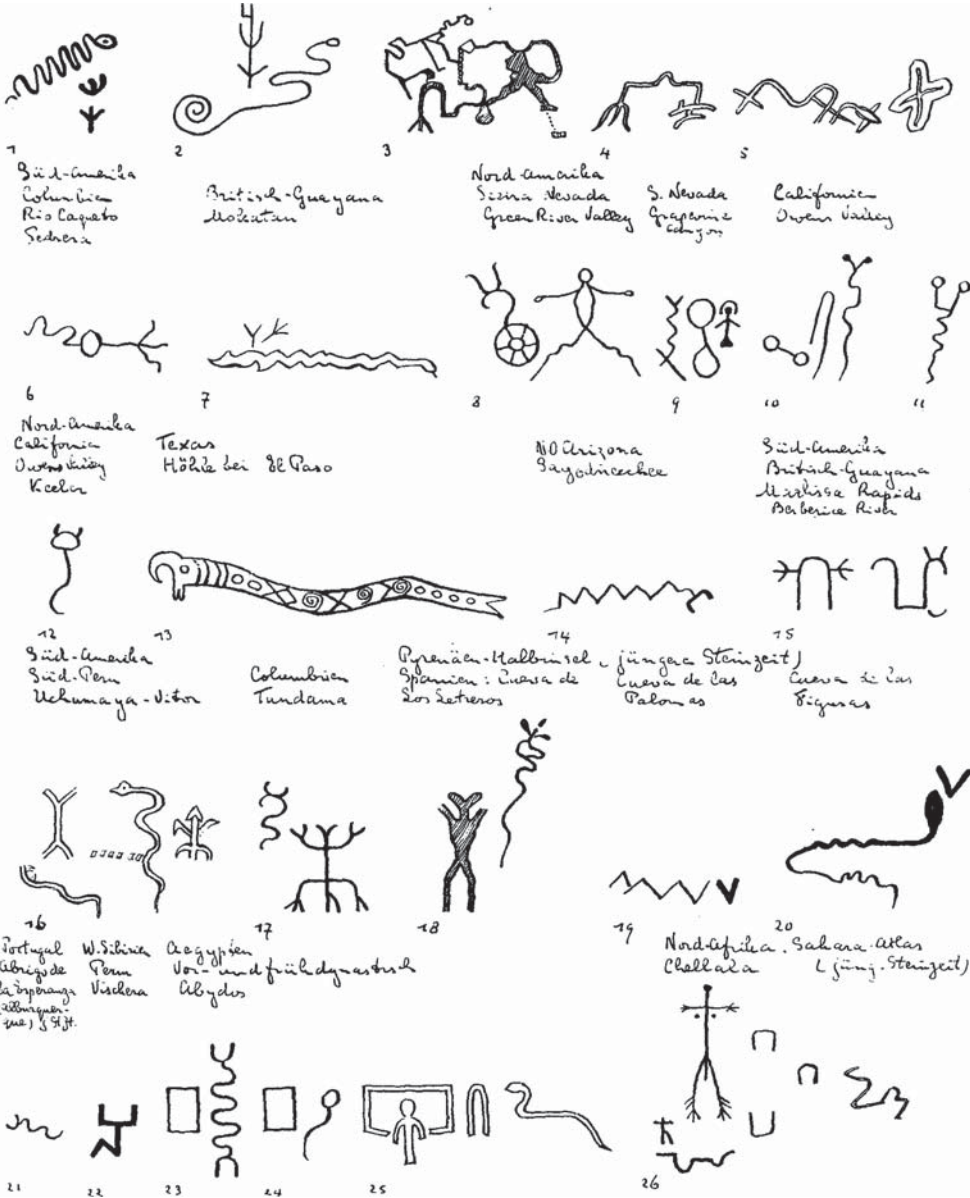 1 2 3 4 5
Süd-Amerika
Columbien
Rio Caqueto
Britisch-Guayana
Mokatan
Nord-Amerika
Sierra Nevada
Green River Valley
S. Nevada
Grapevine
Canyon
Californien
Owens Valley
6 7 8 9 10 11
Nord-Amerika
Californien
Owens Valley
Keeler
Texas
Höhle bei El Paso
NO Arizona
Süd-Amerika
Britisch-Guayana
Marlissa Rapids
Berbice River
12 13 14 15
Süd-Amerika
Süd-Peru
Uchumaya-Vitor
Columbien
Tundama
Pyrenäen-Halbinsel (jüngere Steinzeit)
Spanien: Cueva de
Los Letreros
Cueva de las
Palomas
Cueva de las
Figuras
16 17 18 19 20
Portugal
Abrigo de
la Esperanza
W. Sibirien
Perm
Vischera
Aegypten
Vor- und frühdynastisch
Abydos
Nord-Afrika. Sahara-Atlas
Chellala (jüng. Steinzeit)
21 22 23 24 25 26